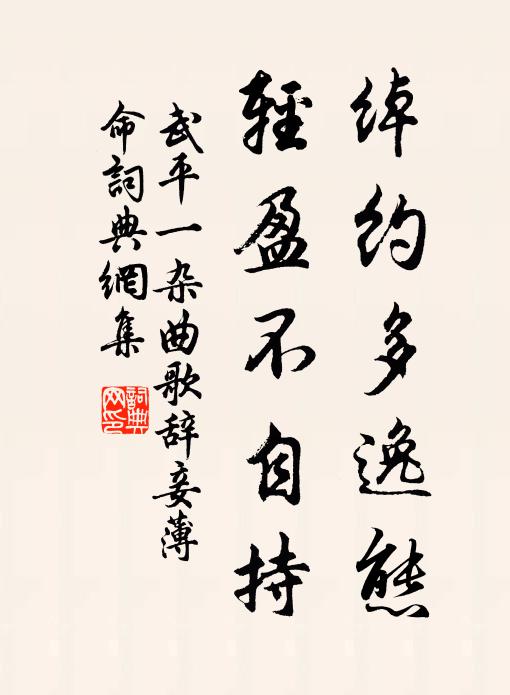 绰约多逸態
輕盈不自持
武平一杂曲歌辞妾薄
命詞典網集
詞典
网印